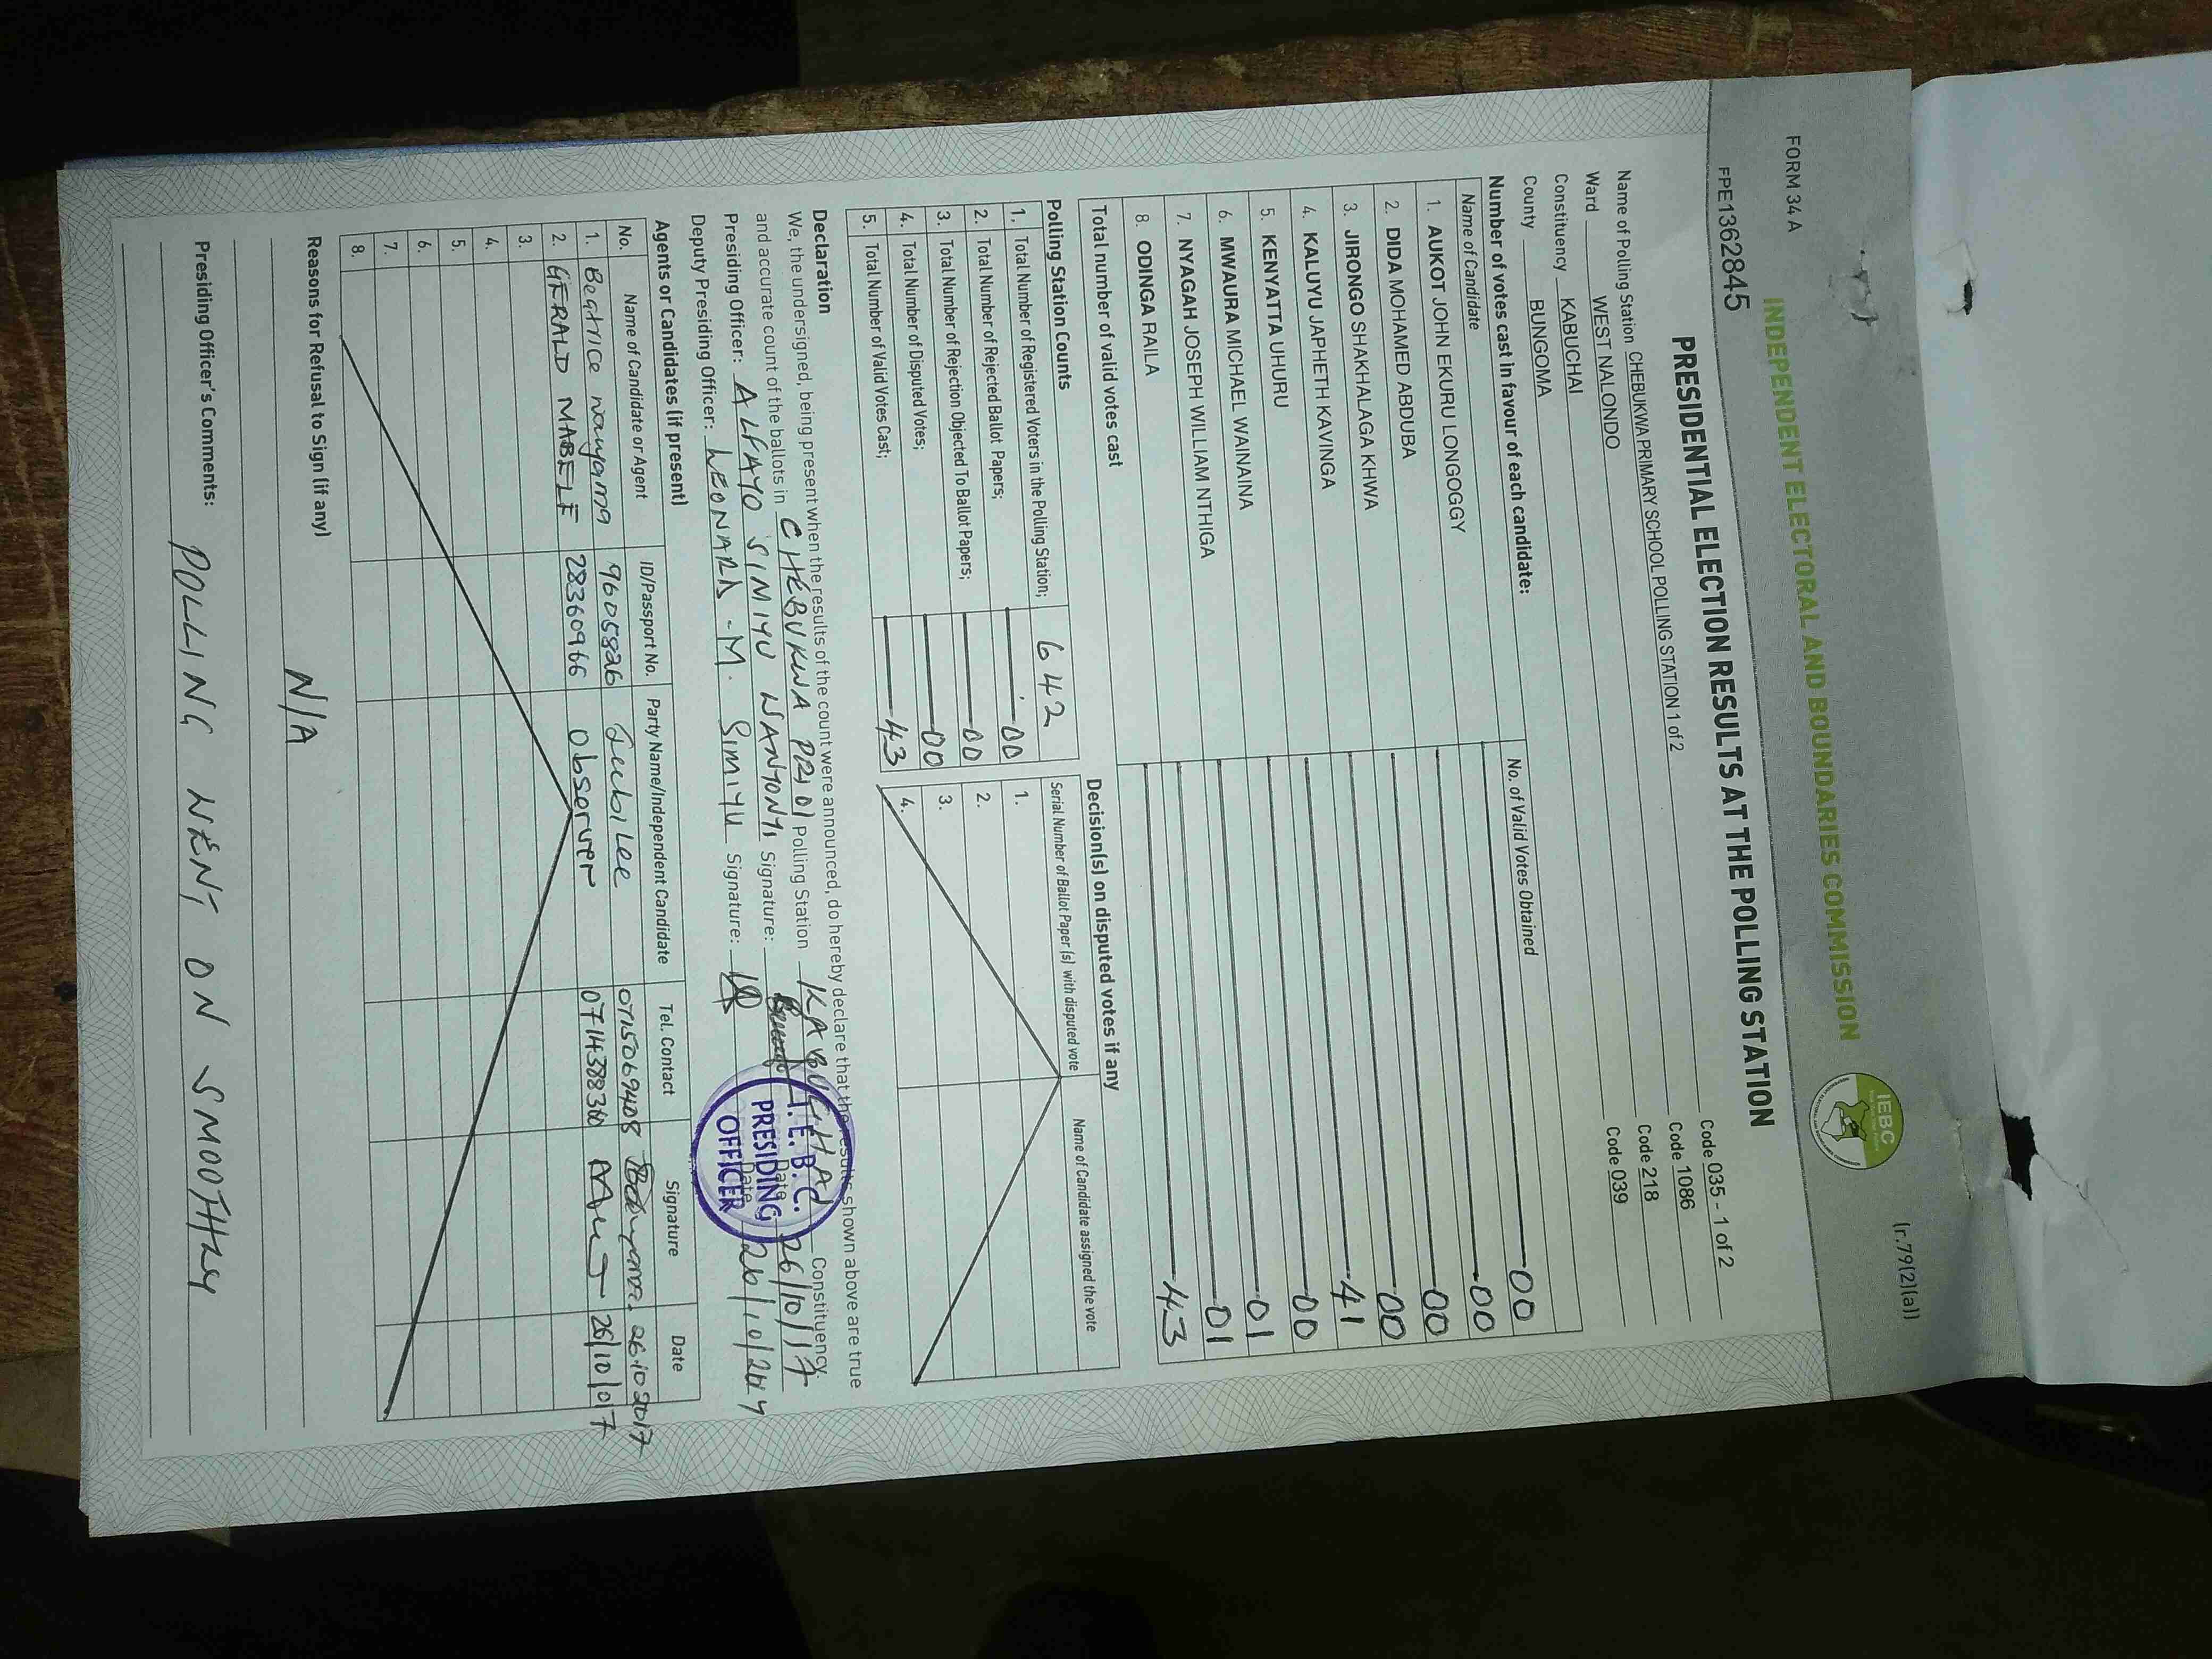 (r.79(2)(a))
FORM 34 A
INDEPENDENT ELECTORAL AND BOUNDARIES COMMISSION
IEBC
FPE1362845
PRESIDENTIAL ELECTION RESULTS AT THE POLLING STATION
Name of Polling Station CHEBUKWA PRIMARY SCHOOL POLLING STATION 1 of 2 Code 035 - 1 of 2
Ward WEST NALONDO Code 1086
Constituency KABUCHAI Code 218
County BUNGOMA Code 039
Number of votes cast in favour of each candidate:
Name of Candidate No. of Valid Votes Obtained
1. AUKOT JOHN EKURU LONGOGGY 00
2. DIDA MOHAMED ABDUBA 00
3. JIRONGO SHAKHALAGA KHWA 00
4. KALUYU JAPHETH KAVINGA 00
5. KENYATTA UHURU 41
6. MWAURA MICHAEL WAINAINA 00
7. NYAGAH JOSEPH WILLIAM NTHIGA 01
8. ODINGA RAILA 01
Total number of valid votes cast 43
Polling Station Counts
1. Total Number of Registered Voters in the Polling Station; 642
2. Total Number of Rejected Ballot Papers; 00
3. Total Number of Rejection Objected To Ballot Papers; 00
4. Total Number of Disputed Votes; 00
5. Total Number of Valid Votes Cast; 43
Decision(s) on disputed votes if any
Serial Number of Ballot Paper (s) with disputed vote Name of Candidate assigned the vote
1.
2.
3.
4.
Declaration
We, the undersigned, being present when the results of the count were announced, do hereby declare that the results shown above are true
and accurate count of the ballots in CHEBUKWA PRI 01 Polling Station KABUCHAI Constituency.
Presiding Officer: ALFAYO SIMIYU WANYONYI Signature: Date 26/10/17
Deputy Presiding Officer: LEONARD -M. SIMIYU Signature: Date 26/10/2017
I.E.B.C.
PRESIDING
OFFICER
Agents or Candidates (if present)
No. Name of Candidate or Agent ID/Passport No. Party Name/Independent Candidate Tel. Contact Signature Date
1. Beatrice Nanyama 9605826 Jubilee 0715069408 26.10.2017
2. GERALD MABELE 28360966 Observer 26/10/017
3.
4.
5.
6.
7.
8.
Reasons for Refusal to Sign (if any)
N/A
Presiding Officer's Comments: POLLING WENT ON SMOOTHLY